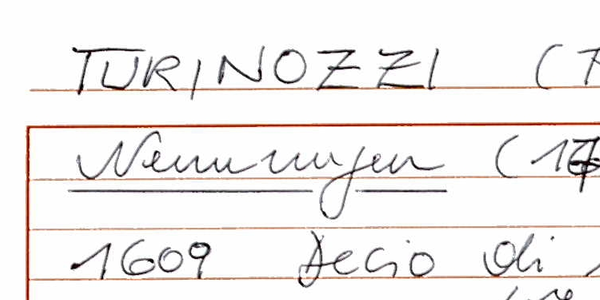 TURINOZZI (7
Nennungen (17
1609 Decio di